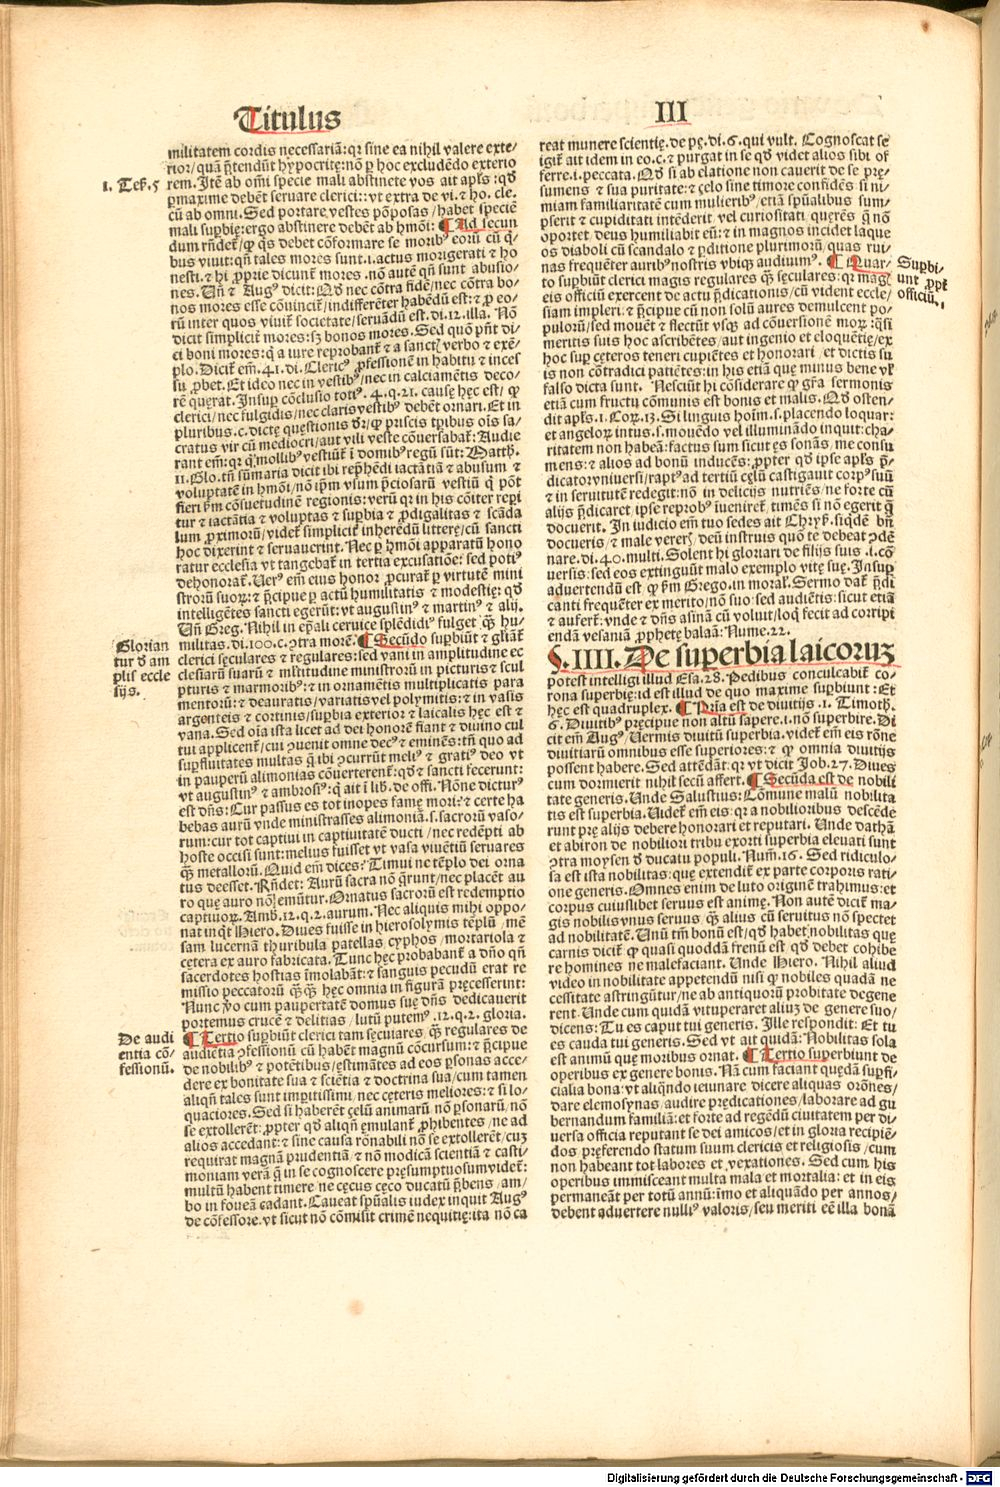 Titulus
III
militatem cordis necessariā: qr sine ea nihil valere exte-
rior/quā p̄tendūt hypocritę: nō ꝑ hoc excludēdo exterio
1. Teß. 5
rem. Itē ab omī specie mali abstinete vos ait apl's: qd̄
ꝑmaxime debēt seruare clerici:: vt extra de vi. ⁊ ho. cle.
cū ab omni. Sed portare vestes pōposas/habet speciē
mali suꝑbię: ergo abstinere debēt ab hmōi: ¶ Ad secun
dum rn̄det/ꝙ qs debet cōformare se moribꝰ eorū cū q̄-
bus viuit: qn̄ tales mores sunt .i. actus morigerati ⁊ ho
nesti. ⁊ hi ꝓprie dicunt mores. nō autē qn̄ sunt abusio-
nes. Un̄ ⁊ Augꝰ dicit: Qd̄ nec cōtra fidē/nec cōtra bo-
nos mores esse cōuincit/indifferēter habēdū est: ⁊ ꝓ eo-
rū inter quos viuit societate/seruādū est. di. 12. illa. Nō
dicit simplicit mores: sꝫ bonos mores. Sed quō pn̄t di-
ci boni mores: q̄ a iure reprobant ⁊ a sanctꝭ verbo ⁊ exē-
plo. Dicit em̄ .41. di. Clericꝰ ꝓfessionē in habitu ⁊ inces
su ꝓbet. Et ideo nec in vestibꝰ/nec in calciamētis deco-
rē quęrat. Insuꝑ cōclusio totiꝰ .4. q. 21. causę hęc est/ꝙ
clerici/nec fulgidis/nec claris vestibꝰ debēt ornari. Et in
pluribus .c. dictę quęstionis dr̄/ꝙ priscis tꝑibus oīs sa-
cratus vir cū mediocri/aut vili veste cōuersabat: Audie
rant em̄: qr qꝭ mollibꝰ vestiūt ī domibꝰ regū sūt: Matth.
11. Glo. tn̄ sūmaria dicit ibi rep̄hēdi iactātiā ⁊ abusum ⁊
voluptatē in hmōi/nō ip̄m vsum p̄ciosarū vestiū q̄ pōt
fieri ẜm cōsuetudinē regionis: verū qr in his cōiter reꝑi
tur ⁊ iactātia ⁊ voluptas ⁊ suꝑbia ⁊ ꝓdigalitas ⁊ scāda
lum ꝓximorū/videt simplicit inherēdū litterę/cū sancti
hoc dixerint ⁊ seruauerint. Nec ꝑ hmōi apparatū hono
ratur ecclesia vt tangebat in tertia excusatiōe: sed potiꝰ
dehonorat. Uerꝰ em̄ eius honor ꝓcurat ꝑ virtutē mini
strorū suoꝝ: ⁊ p̄cipue ꝑ actū humilitatis ⁊ modestię: qd̄
intelligētes sancti egerūt: vt augustinꝰ ⁊ martinꝰ ⁊ alij.
Un̄ Greg. Nihil in ep̄ali ceruice splēdidiꝰ fulget qꝫ hu-
militas. di. 100. c. ↄtra morē. ¶ Secūdo suꝑbiūt ⁊ gliāt
Glorian
tur d̄ am
plis eccle
sijs.
clerici sęculares ⁊ regulares: sed vani in amplitudine ec
clesiarū suarū ⁊ mītitudine ministrorū in picturis ⁊ scul
pturis ⁊ marmoribꝰ: ⁊ in ornamētis multiplicatis para
mentorū: ⁊ deauratis/variatis vel polymitis: ⁊ in vasis
argenteis ⁊ cortinis/suꝑbia exterior ⁊ laicalis hęc est ⁊
vana. Sed oīa ista licet ad dei honorē fiant ⁊ diuino cul
tui applicent/cui ↄuenit omne decꝰ ⁊ eminēs: tn̄ quo ad
suꝑfluitates multas q̄ ibi ↄcurrūt meliꝰ ⁊ gratiꝰ deo vt
in pauperū alimonias cōuerterent: qd̄ ⁊ sancti fecerunt:
vt augustinꝰ ⁊ ambrosiꝰ: q̄ ait i lib. de offi. Nōne dicturꝰ
est dn̄s: Cur passus es tot inopes famę mori: ⁊ certe ha
bebas aurū vnde ministrasses alimoniā. s. sacrorū vaso-
rum: cur tot captiui in captiuitatē ducti/nec redēpti ab
hoste occisi sunt: melius fuisset vt vasa viuētiū seruares
qꝫ metallorū. Quid em̄ dices: Timui ne tēplo dei orna
tus deesset. Rn̄det: Aurū sacra nō q̄runt/nec placēt au
ro quę auro nō emūtur. Ornatus sacrorū est redemptio
captiuoꝝ. Amb. 12. q. 2. aurum. Nec aliquis mihi oppo-
nat inqt Hiero. Diues fuisse in hierosolymis tēplū/mē
sam lucernā thuribula patellas cyphos/mortariola ⁊
cętera ex auro fabricata. Tunc hęc probabant a dn̄o qn̄
sacerdotes hostias īmolabāt: ⁊ sanguis pecudū erat re
missio peccatorū qꝫ qꝫ hęc omnia in figurā pręcesserint:
Nunc v̄o cum paupertatē domus suę dn̄s dedicauerit
portemus crucē ⁊ delitias/lutū putemꝰ. 12. q. 2. gloria.
De audi
entia cō-
fessionū.
¶ Tertio suꝑbiūt clerici tam sęculares qꝫ regulares de
audiētia ↄfessionū cū habēt magnū cōcursum: ⁊ p̄cipue
de nobilibꝰ ⁊ potētibus/ęstimātes ad eos ꝑsonas acce-
dere ex bonitate sua ⁊ sciētia ⁊ doctrina sua/cum tamen
aliqn̄ tales sunt imꝑitissimi/nec cęteris meliores: ⁊ si lo-
quaciores. Sed si haberēt ęelū animarū nō ꝑsonarū/nō
se extollerēt: ꝓpter qd̄ aliqn̄ ęmulant ꝓhibentes/ne ad
alios accedant: ⁊ sine causa rōnabili nō se extollerēt/cuꝫ
requirat magnā prudentiā/⁊ nō modicā scientiā ⁊ casti-
moniam verā q̄ in se cognoscere pręsumptuosum videt:
multū habent timere/ne cęcus cęco ducatū p̄bens/am/
bo in foueā cadant. Caueat sp̄ualis iudex inquit Augꝰ
de cōfessore. vt sicut nō cōmisit crimē nequitię: ita nō ca
reat munere scientię. de pę. di. 6. qui vult. Cognoscat se
igit ait idem in eo. c. ⁊ purgat in se qd̄ videt alios sibi of
ferre .i. peccata. Qd̄ si ab elatione non cauerit de se prę-
sumens ⁊ sua puritate: ⁊ ęelo sine timore confidēs si ni-
miam familiaritatē cum mulieribꝰ/etiā sp̄ualibus sum-
pserit ⁊ cupiditati intēderit vel curiositati/quęrēs q̄ nō
oportet deus humiliabit eū: ⁊ in magnos incidet laque
os diaboli cū scandalo ⁊ ꝑditione plurimorū/quas rui-
nas frequēter auribꝰ nostris vbiqꝫ audiuimꝰ. ¶ Quar-
Suꝑbi-
unt ꝓpt
officiū.
to suꝑbiūt clerici magis regulares qꝫ sęculares: qr magꝭ
eis officiū exercent de actu p̄dicationis/cū vident eccle/
siam impleri: ⁊ p̄cipue cū non solū aures demulcent po-
pulorū/sed mouēt ⁊ flectūt vsqꝫ ad cōuersionē moꝝ: q̄si
meritis suis hoc ascribētes/aut ingenio et eloquētię/ex
hoc suꝑ cęteros teneri cupiētes et honorari/et dictis su
is non cōtradici patiētes: in his etiā quę minus bene vl
falso dicta sunt. Nesciūt hi cōsiderare ꝙ gr̄a sermonis
etiā cum fructu cōmunis est bonis et malis. Qd̄ osten-
dit apl's .1. Coꝝ. 13. Si linguis hoīm .s. placendo loquar:
et angeloꝝ intus .s. mouēdo vel illuminādo inquit: cha-
ritatem non habeā: factus sum sicut ęs sonās/me consu
mens: ⁊ alios ad bonū inducēs: ꝓpter qd̄ ipse apl's p̄-
dicator vniuersi/raptꝰ ad tertiū cęlū castigauit corpꝰ suū
⁊ in seruitutē redegit: nō in delicijs nutriēs/ne forte cū
alijs p̄dicaret/ipse reprobꝰ īueniret/timēs si nō egerit q̄
docuerit. In iudicio em̄ tuo sedes ait Chryß. siqdē bn̄
docueris/⁊ male vereꝝ deū instruis quō te debeat ↄdē
nare. di. 40. multi. Solent hi gloriari de filijs suis .i. cō
uersis: sed eos extinguūt malo exemplo vitę suę. Insuꝑ
aduertendū est/ꝙ ẜm Grego. in moral. Sermo dat p̄di
canti frequēter ex merito/nō suo: sed audiētis: sicut etiā
⁊ aufert: vnde ⁊ dn̄s asinā cū voluit/loq̄ fecit ad corripi
endā vesaniā ꝓphetę balaā: Nume. 22.
§. IIII. De superbia laicoruꝫ
potest intelligi illud Esa. 28. Pedibus conculcabit co-
rona superbię: id est illud de quo maxime suꝑbiunt: Et
hęc est quadruplex. ¶ Pr̄ia est de diuitijs .1. Timoth.
6. Diuitibꝰ pręcipue non altū sapere .i. nō superbire. Di
cit em̄ Augꝰ/Uermis diuitū superbia. videt em̄ eis rōne
diuitiarū omnibus esse superiores: ⁊ ꝙ omnia diuitijs
possent habere. Sed attēdāt: qr vt dicit Job. 27. Diues
cum dormierit nihil secū affert. ¶ Secūda est de nobili
tate generis. Unde Salustius: Cōmune malū nobilita
tis est superbia. Uidet em̄ eis: qr a nobilioribus descēde
runt prę alijs debere honorari et reputari. Unde dathā
et abiron de nobiliori tribu exorti superbia eleuati sunt
ↄtra moysen d̄ ducatu populi. Num̄. 16. Sed ridiculo-
sa est ista nobilitas: quę extendit ex parte corporis rati-
one generis. Omnes enim de luto originē trahimus: et
corpus cuiuslibet seruus est animę. Non autē dicit ma-
gis nobilis vnus seruus qꝫ alius cū seruitus nō spectet
ad nobilitatē. Unū tm̄ bonū est/qd̄ habet nobilitas quę
carnis dicit ꝙ quasi quoddā frenū est qd̄ debet cohibe
re homines ne malefaciant. Unde Hiero. Nihil aliud
video in nobilitate appetendū nisi ꝙ nobiles quadā ne
cessitate astringūtur/ne ab antiquorū probitate degene
rent. Unde cum quidā vituperaret aliuꝫ de genere suo/
dicens: Tu es caput tui generis. Ille respondit: Et tu
es cauda tui generis. Sed vt ait quidā: Nobilitas sola
est animū quę moribus ornat. ¶ Tertio superbiunt de
operibus ex genere bonis. Nā cum faciant quędā suꝑfi-
cialia bona: vt aliqn̄do ieiunare dicere aliquas orōnes/
dare elemosynas/audire prędicationes/laborare ad gu
bernandum familiā: et forte ad regēdū ciuitatem per di-
uersa officia reputant se dei amicos/et in gloria recipiē-
dos pręferendo statum suum clericis et religiosis/cum
non habeant tot labores et vexationes. Sed cum his
operibus immisceant multa mala et mortalia: et in eis
permaneāt per totū annū: īmo et aliquādo per annos/
debent aduertere nulliꝰ valoris/seu meriti eē illa bonā
Digitalisierung gefördert durch die Deutsche Forschungsgemeinschaft - DFG